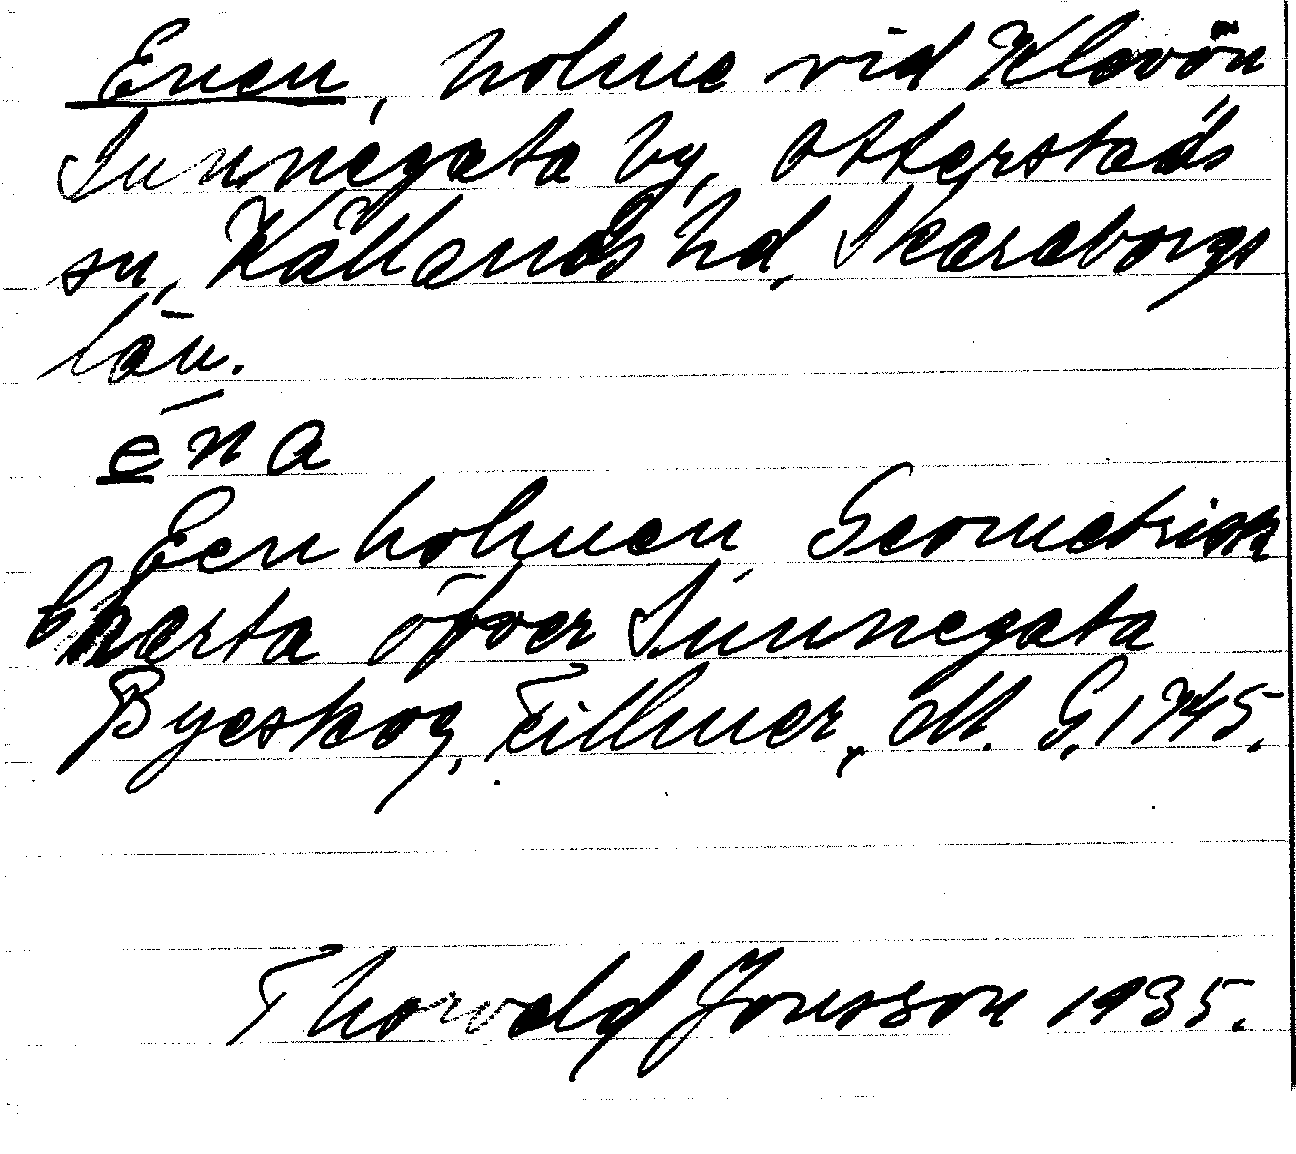 Enen, holme vid Klovön
Sunnegata by, Otterstads
sn, Kållands hd, Skaraborgs
län.
éna
Een holmen Geometrisk
Charta öfver Sunnegata
Byeskog, Fillmer, M. G. 1745.
Thorvald Jonsson 1935.